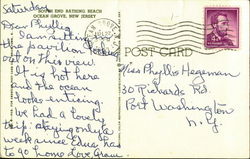 Saturday
SOUTH END BATHING BEACH
OCEAN GROVE, NEW JERSEY
Dear Phyllis,
I am sitting on
the pavilion looking
out on this view.
It is hot here
and the ocean
looks enticing.
We had a lovely
trip. Staying only a
week since Edna has
to go home. Love, Gram
POST CARD
Miss Phyllis Hegeman
30 Richards Rd.
Port Washington
N.Y.